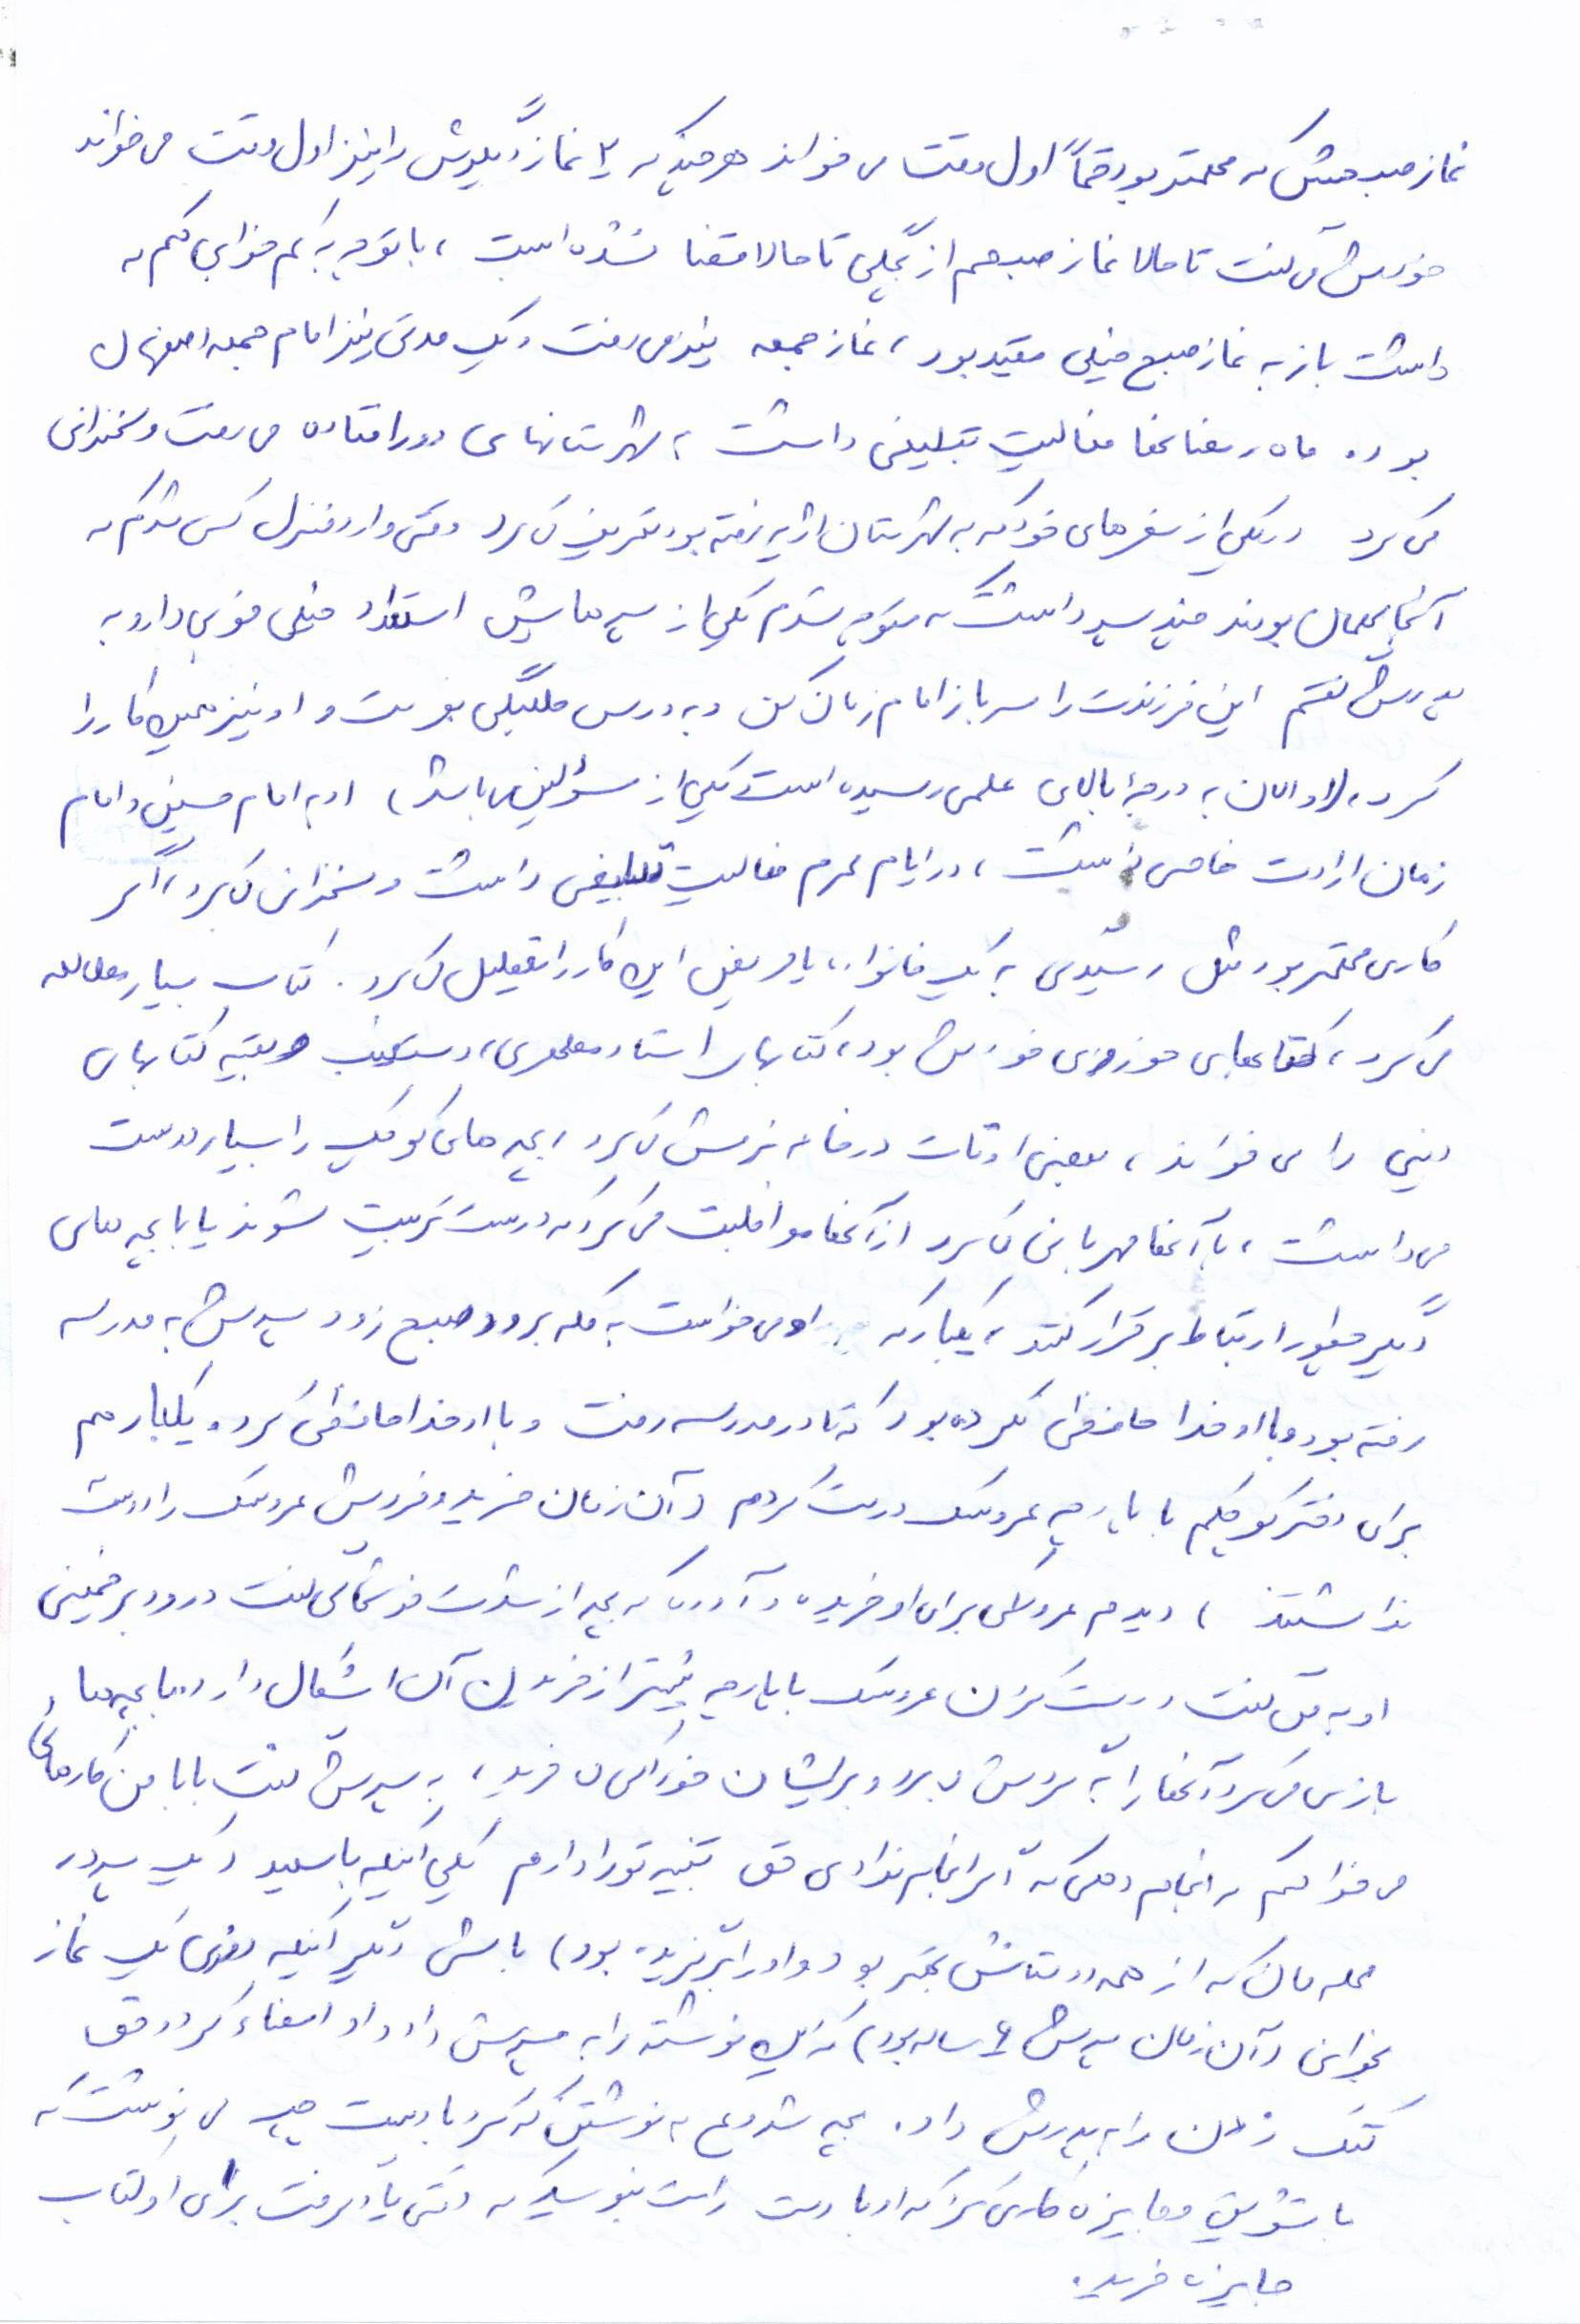 نماز صبحش که محلمتر بود حتماً اول وقت می خواند هر چند که ۲ نماز دیگرش را نیز اول وقت می خواند
خودش می گفت تا حالا نماز صبحم از بچگی تا حالا قضا نشده است ، با توجه به کم خوابی که
داشت باز به نماز صبح خیلی مقید بود ، نماز جمعه نیز می رفت و یک مدتی نیز امام جمعه اصفهان
بود. ماه رمضانها فعالیت تبلیغی داشت ، شهرستانهای دور افتاده می رفت و سخنرانی
می کرد در یکی از سفرهای خود که به شهرستان اژیه رفته بود تعریف می کرد وقتی وارد منزل کسی شدم که
آنجا مهمان بودند چند پسر داشت که متوجه شدم یکی از پسرهایش استعداد خیلی خوبی دارد به
پدرش گفتم این فرزندت را سرباز امام زمان کن و به درس طلبگی بفرست و او نیز همین کار را
کرد، (او الان به درجۀ بالای علمی رسیده است و یکی از مسؤلین می باشد) او به امام حسین و امام
زمان ارادت خاصی داشت ، در ایام محرم فعالیت تبلیغی داشت و سخنرانی می کرد، اگر
کاری مهمتر بود مثل رسیدگی به یک خانواده یا مریض این کار را تعطیل می کرد. کتاب بسیار مطالعه
می کرد ، کتابهای حوزوی خودش بود، کتابهای استاد مطهری، دستغیب و بقیه کتابهای
دینی را می خواند ، بعضی اوقات در خانه نرمش می کرد، بچه های کوچک را بسیار دوست
می داشت ، با آنها مهربانی می کرد از آنها مواظبت می کرد که درست تربیت شوند یا با بچه های
دیگر چطور ارتباط برقرار کنند ، یکبار که او می خواست به مکه برود صبح زود پسرش به مدرسه
رفته بود و با او خدا حافظی نکرده بود که تا در مدرسه رفت و با او خدا حافظی کرد. یکبار هم
برای دختر کوچکم با پارچه عروسک درست کردم (آن زمان خرید و فروش عروسک را دوست
نداشتند) ، دیدم عروسکی برای او خریده و آورده که بچه از شدت خوشحالی گفت درود بر خمینی
او به من گفت درست کردن عروسک با پارچه بیشتر از خریدن آن اشکال دارد. با بچه ها
بازی می کرد آنها را به گردش می برد و برایشان خوراکی می خرید ، به پسرش گفت بابا من کارهائی
می خواهم که انجام دهی که اگر انجام ندادی حق تنبیه تو را دارم یکی اینکه با سعید (یک پسر در
محله مان که از همه دوستانش بهتر بود و او را برگزیده بود) باش دیگر اینکه روزی یک نماز
بخوانی (آن زمان پسرش ۶ ساله بود) که این نوشته را به پسرش داد و او امضاء کرد و حق
کتک زدن را به پدرش داد. بچه شروع به نوشتن که کرد با دست چپ می نوشت که
با تشویق و جایزه کاری کرد که او با دست راست بنویسد که وقتی یاد گرفت برای او کتاب
جایزه خرید.